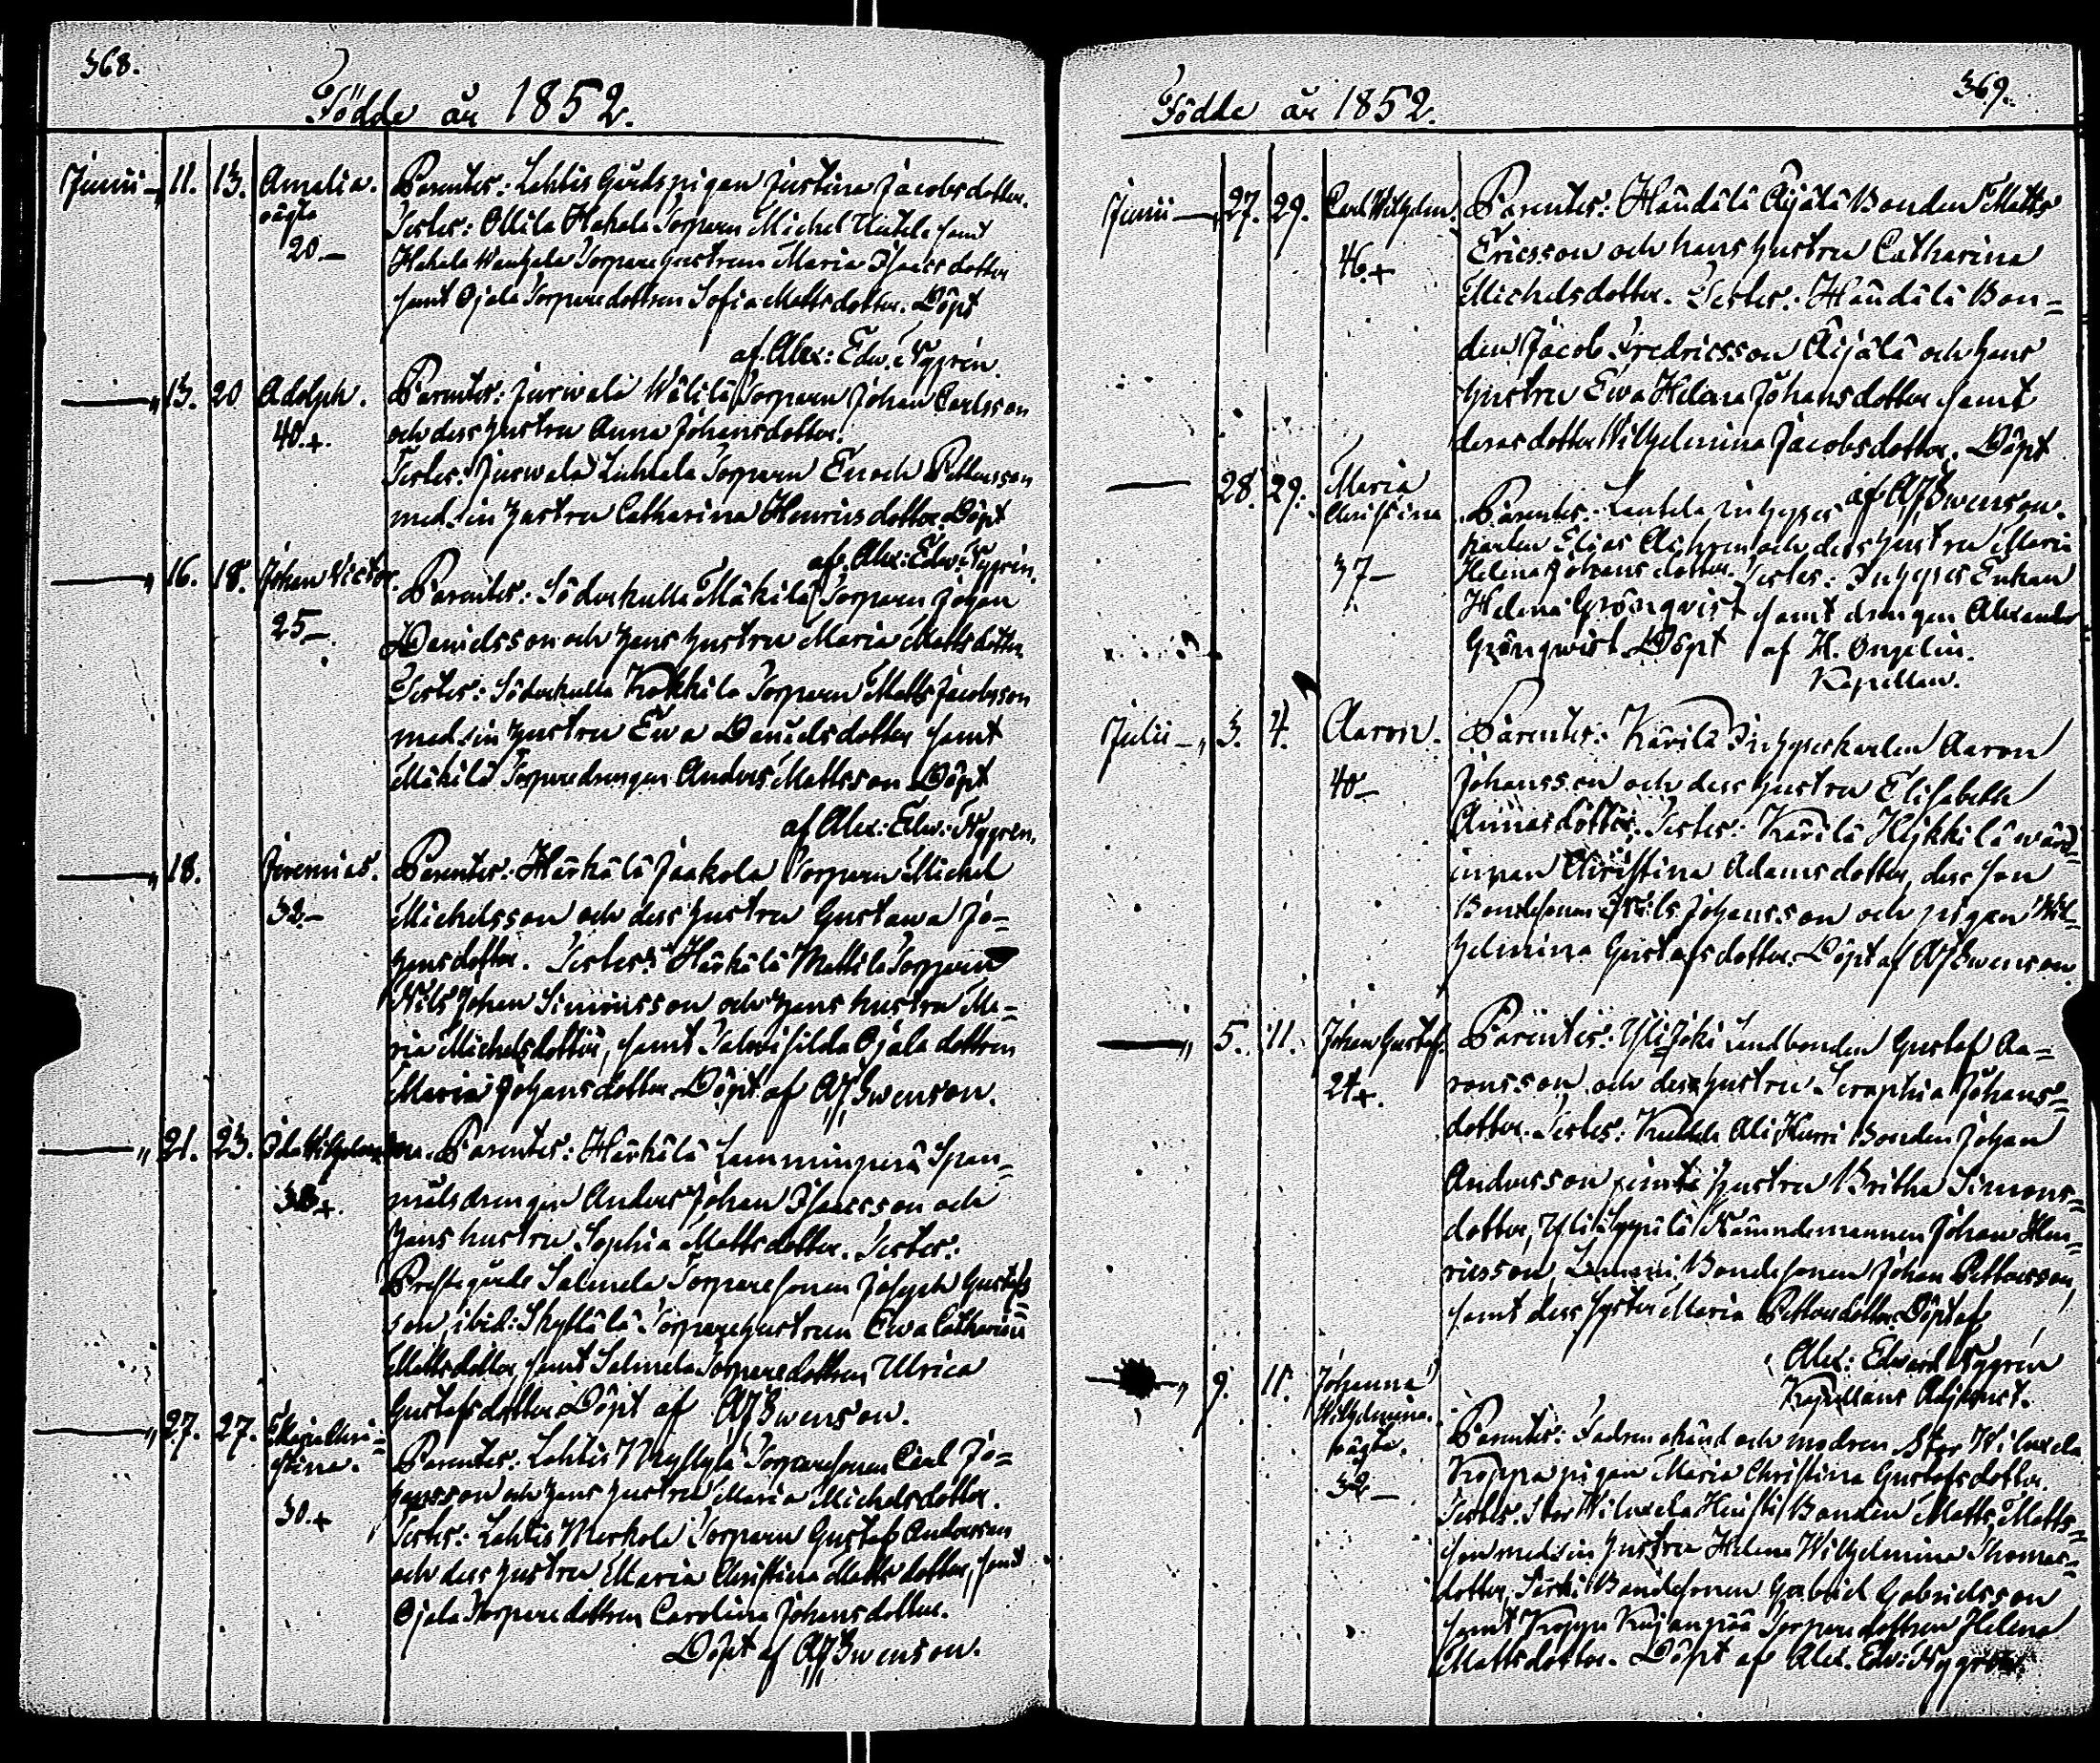 368.
Födde år 1852.
Junii — 11. 13. Amalia. Parentes: Lahtis Gårds pigan Justina Jacobsdotter.
oägta Testes: Ollila Hakala Torparen Michel samt
20.— Hakala Torpare hustrun Maria Isaacsdotter
samt Ojala Torparedottren Sofia Mattsdotter. Döpt
af Alex: Edw. Nygrén.
—„ 13. 20 Adolph. Parentes: Jurvala Wälilä Torparen Johan Carlsson
40.+. och dess hustru Anna Johansdotter.
Testes: Jurvala Torparen Enoch Pettersson
med sin hustru Catharina Henricsdotter. Döpt
af. Alex: Edw. Nygrén.
—„ 16. 18. Johan Victor. Parentes: Söderkulla Mäkilä Torparen Johan
25.— Danielsson och hans hustru Maria Mattsdotter
Testes: Söderkulla Kokkila Torparen Matts Jacobsson
med sin hustru Ewa Danielsdotter samt
Mäkilä Torparedrengen Anders Mattsson Döpt
af Alex: Edw: Nygren.
—„ 18. Jeremias. Parentes: Härkälä Jaakola Torparen Michel
32.— Michelsson och dess hustru Gustava Jo=
hansdotter. Testes: Härkälä Mattila Torparen
Nils Johan Simonsson och hans hustru Ma=
ria Michelsdotter, samt Ojala dottren
Maria Johansdotter. Döpt af AJSwenson.
—„ 21. 23. Ida Wilhelmina. Parentes: Härkälä Lamminperä Span=
38+. målsdrengen Anders Johan Isacsson och
hans hustru Sophia Mattsdotter. Testes:
Prestegårds Salmela Torparesonen Joseph Gustafs
son, ibid: Skyttälä Torparehustrun Ewa Catharina
Mattsdotter samt Salmela Torparedottren Ulrica
Gustafsdotter Döpt af AJSwenson.
—„ 27. 27. Maria Chri=
stina. Parentes: Lahtis Torparesonen Carl Jo=
30.+ hansson och hans hustru Maria Michelsdotter.
Testes: Lahtis Merkola Torparen Gustaf Andersson
och dess hustru Maria Christina Mattsdotter, samt
Ojala Torparedottren Carolina Johansdotter.
Döpt af AJSwenson.
369.
Födde år 1852.
Junii —„ 27. 29. Carl Wilhelm. Parentes: Haudälä Äijälä Bonden Matts
46.+ Ericsson och hans hustru Catharina
Michelsdotter. Testes: Haudälä Bon=
den Jacob Fredricsson Äijälä och hans
hustru Ewa Helena Johansdotter samt
deras dotter Wilhelmina Jacobsdotter. Döpt
af AJSwenson.
— 28. 29. Maria
Christina Parentes: Lautela inhyses
37— karlen Elias och dess hustru Maria
Helena Johansdotter. Testes: Inhyses Enkan
Helena Grönqvist samt drengen Alexander
Grönqvist Döpt af H. Ongelin.
Kapellan.
Julii —„ 3. 4. Aaron. Parentes: Kärilä Inhyseskarlen Aaron
40— Johansson och dess hustru Elisabeth
Annasdotter. Testes: Kärilä Hejkkilä värd=
innan Christina Adamsdotter, dess son
Bondesonen Nils Johansson och pigan Wil=
helmina Gustafsdotter. Döpt af AJSwenson.
—„ 5. 11. Johan Gustaf. Parentes: Ylijoki Landbonden Gustaf Aa=
24+. ronsson, och dess hustru Seraphia Johans=
dotter. Testes: Ali Kurri Bonden Johan
Andersson hustru Britha Simons=
dotter, Yli Nämndemannen Johan Hen=
ricsson, Bondesonen Johan Pettersson,
samt dess syster Maria Pettersdotter. Döpt af
Alex: Edward Nygrén
Kapellans Adjunct.
—„ 9. 11. Johanna
Wilhelmina.
oägta. Parentes: Fadren okänd och modren Stor Wiluxela
32— Koppa pigan Maria Christina Gustafsdotter.
Testes: Stor Wiluxela Heikki Bonden Matts Matts=
son med sin hustru Helena Wilhelmina Thomas=
dotter, Bondesonen Gabriel Gabrielsson
samt Koppa Kujanpää Torparedottren Helena
Mattsdotter. Döpt af Alex. Edw: Nygrén.